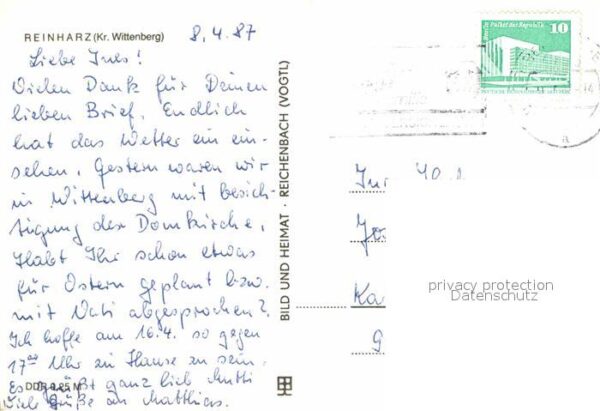 REINHARZ (Kr. Wittenberg)
8.4.87
Liebe Ines!
Vielen Dank für Deinen
lieben Brief. Endlich
hat das Wetter ein ein-
sehen. Gestern waren wir
in Wittenberg mit besich-
tigung der Domkirche.
Habt Ihr schon etwas
für Ostern geplant bzw.
mit Vati abgesprochen?
Ich hoffe am 16.4. so gegen
17⁰⁰ Uhr zu Hause zu sein.
Es grüßt ganz lieb Mutti
Viele Grüße an Matthias.
DDR 0,25 M
BILD UND HEIMAT · REICHENBACH (VOGTL)
10
Berlin, Palast der Republik
Ka
privacy protection
Datenschutz